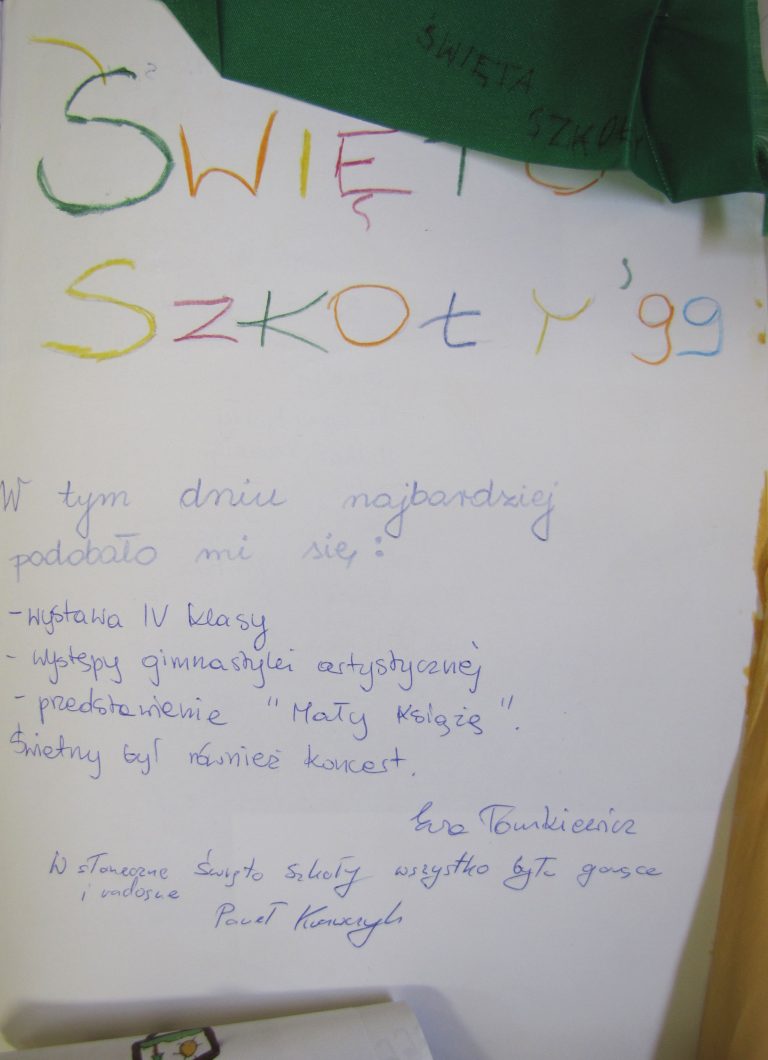 ŚWIĘTA
SZKOŁY
ŚWIĘTO
SZKOŁY '99
W tym dniu najbardziej
podobało mi się:
- wystawa IV klasy
- występy gimnastyki artystycznej
- przedstawienie "Mały Książę".
Świetny był również koncert.
Ewa
W słoneczne Święto Szkoły wszystko było gorące
i radosne
Paweł Krawczyk